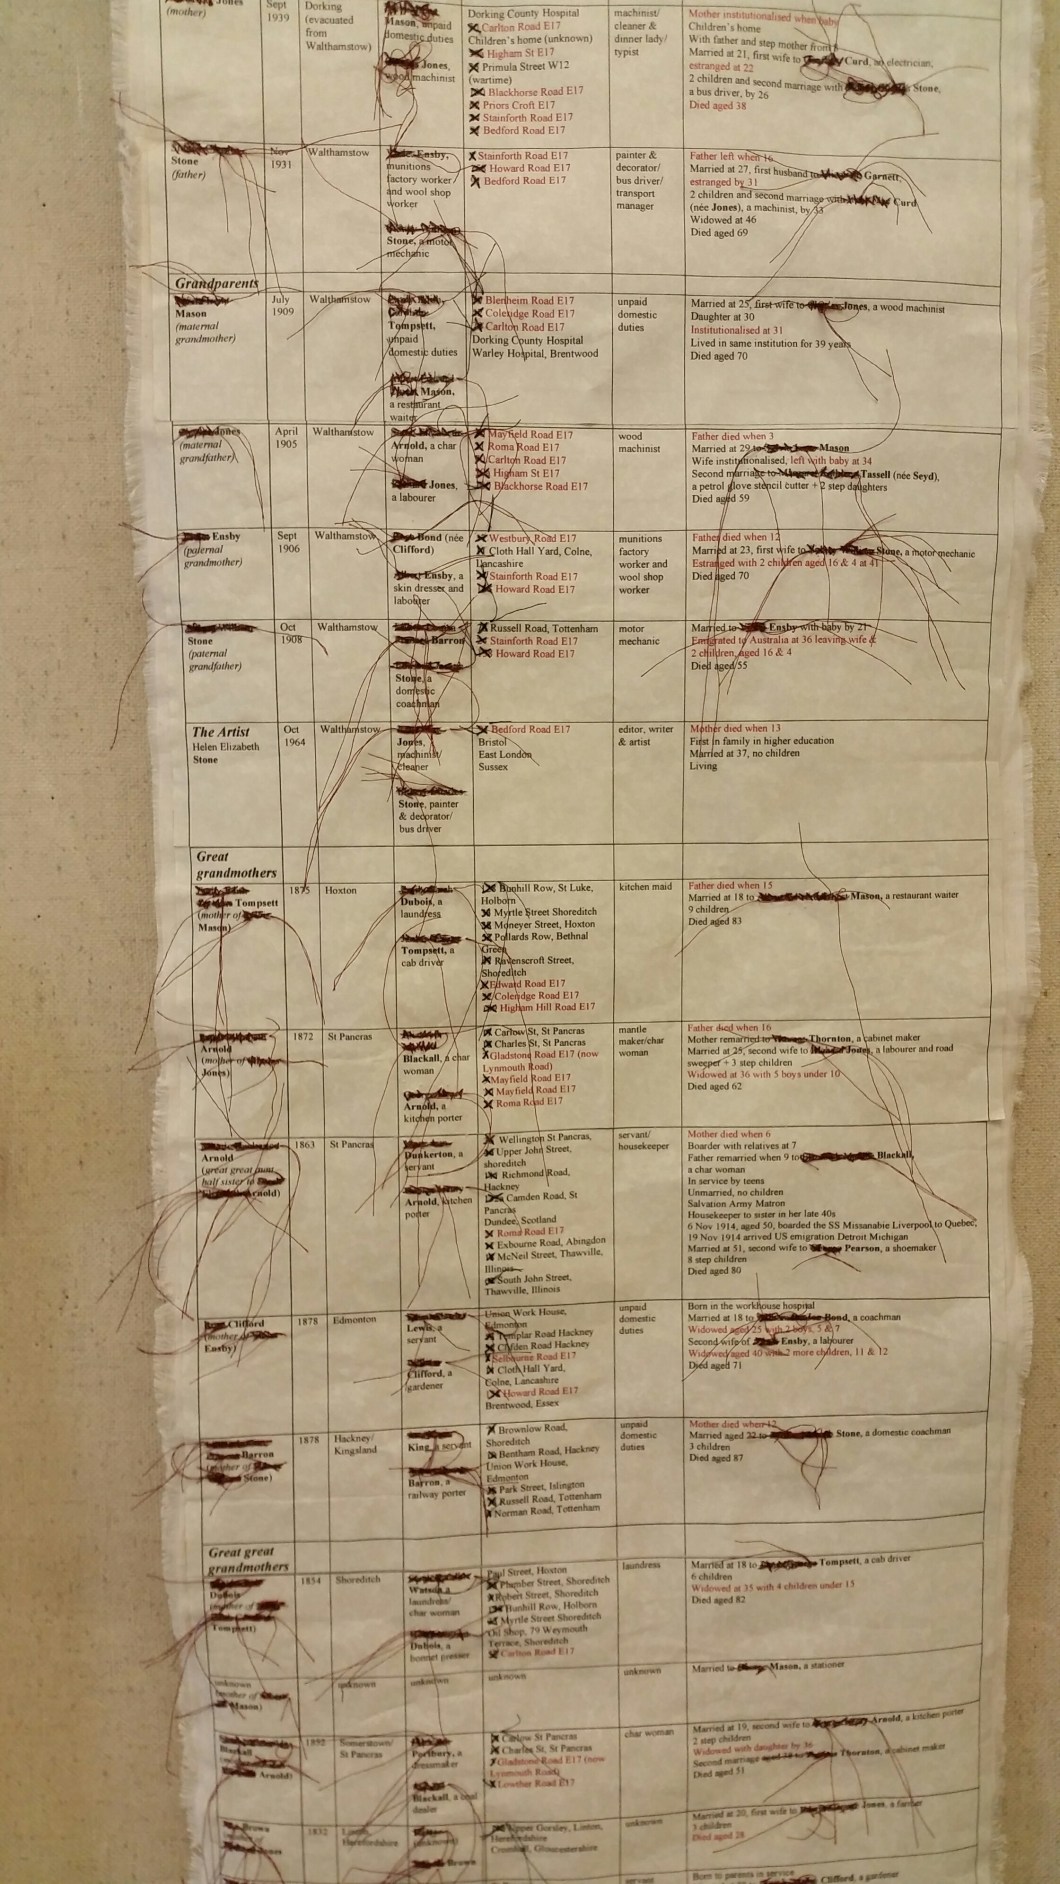 Jones
(mother)
Sept
1939
Dorking
(evacuated
from
Walthamstow)
Mason, unpaid
domestic duties
Jones,
wood machinist
Dorking County Hospital
Carlton Road E17
Children's home (unknown)
Higham St E17
Primula Street W12
(wartime)
Blackhorse Road E17
Priors Croft E17
Stainforth Road E17
Bedford Road E17
machinist/
cleaner &
dinner lady/
typist
Mother institutionalised when baby
Children's home
With father and step mother from 8
Married at 21, first wife to Curd, an electrician,
estranged at 22
2 children and second marriage with Stone,
a bus driver, by 26
Died aged 38
Stone
(father)
Nov
1931
Walthamstow
Ensby,
munitions
factory worker/
and wool shop
worker
Stone, a motor
mechanic
Stainforth Road E17
Howard Road E17
Bedford Road E17
painter &
decorator/
bus driver/
transport
manager
Father left when 16
Married at 27, first husband to Garnett,
estranged by 31
2 children and second marriage with Curd
(née Jones), a machinist, by 33
Widowed at 46
Died aged 69
Grandparents
Mason
(maternal
grandmother)
July
1909
Walthamstow
Tompsett,
unpaid
domestic duties
Mason,
a restaurant
waiter
Blenheim Road E17
Coleridge Road E17
Carlton Road E17
Dorking County Hospital
Warley Hospital, Brentwood
unpaid
domestic
duties
Married at 25, first wife to Jones, a wood machinist
Daughter at 30
Institutionalised at 31
Lived in same institution for 39 years
Died aged 70
Jones
(maternal
grandfather)
April
1905
Walthamstow
Arnold, a char
woman
Jones,
a labourer
Mayfield Road E17
Roma Road E17
Carlton Road E17
Higham St E17
Blackhorse Road E17
wood
machinist
Father died when 3
Married at 29 to Mason
Wife institutionalised, left with baby at 34
Second marriage to Tassell (née Seyd),
a petrol glove stencil cutter + 2 step daughters
Died aged 59
Ensby
(paternal
grandmother)
Sept
1906
Walthamstow
Bond (née
Clifford)
Ensby, a
skin dresser and
labourer
Westbury Road E17
Cloth Hall Yard, Colne,
Lancashire
Stainforth Road E17
Howard Road E17
munitions
factory
worker and
wool shop
worker
Father died when 12
Married at 23, first wife to Stone, a motor mechanic
Estranged with 2 children aged 16 & 4 at 41
Died aged 70
Stone
(paternal
grandfather)
Oct
1908
Walthamstow
Barron
Stone, a
domestic
coachman
Russell Road, Tottenham
Stainforth Road E17
Howard Road E17
motor
mechanic
Married to Ensby with baby by 21
Emigrated to Australia at 36 leaving wife &
2 children, aged 16 & 4
Died aged 55
The Artist
Helen Elizabeth
Stone
Oct
1964
Walthamstow
Jones,
machinist/
cleaner
Stone, painter
& decorator/
bus driver
Bedford Road E17
Bristol
East London
Sussex
editor, writer
& artist
Mother died when 13
First in family in higher education
Married at 37, no children
Living
Great
grandmothers
Tompsett
(mother of
Mason)
1875
Hoxton
Dubois, a
laundress
Tompsett, a
cab driver
Bunhill Row, St Luke,
Holborn
Myrtle Street Shoreditch
Moneyer Street, Hoxton
Pollards Row, Bethnal
Green
Ravenscroft Street,
Shoreditch
Edward Road E17
Coleridge Road E17
Higham Hill Road E17
kitchen maid
Father died when 15
Married at 18 to Mason, a restaurant waiter
9 children
Died aged 83
Arnold
(mother of
Jones)
1872
St Pancras
Blackall, a char
woman
Arnold, a
kitchen porter
Carlow St, St Pancras
Charles St, St Pancras
Gladstone Road E17 (now
Lynmouth Road)
Mayfield Road E17
Mayfield Road E17
Roma Road E17
mantle
maker/char
woman
Father died when 16
Mother remarried to Thornton, a cabinet maker
Married at 25, second wife to Jones, a labourer and road
sweeper + 3 step children
Widowed at 36 with 5 boys under 10
Died aged 62
Arnold
(great great aunt
half sister to
Arnold)
1863
St Pancras
Dunkerton, a
servant
Arnold, kitchen
porter
Wellington St Pancras,
Upper John Street,
shoreditch
Richmond Road,
Hackney
Camden Road, St
Pancras
Dundee, Scotland
Roma Road E17
Exbourne Road, Abingdon
McNeil Street, Thawville,
Illinois
South John Street,
Thawville, Illinois
servant/
housekeeper
Mother died when 6
Boarder with relatives at 7
Father remarried when 9 to Blackall,
a char woman
In service by teens
Unmarried, no children
Salvation Army Matron
Housekeeper to sister in her late 40s
6 Nov 1914, aged 50, boarded the SS Missanabie Liverpool to Quebec,
19 Nov 1914 arrived US emigration Detroit Michigan
Married at 51, second wife to Pearson, a shoemaker
8 step children
Died aged 80
Clifford
(mother of
Ensby)
1878
Edmonton
Lewis, a
servant
Clifford, a
gardener
Union Work House,
Edmonton
Templar Road Hackney
Chifden Road Hackney
Selbourne Road E17
Cloth Hall Yard,
Colne, Lancashire
Howard Road E17
Brentwood, Essex
unpaid
domestic
duties
Born in the workhouse hospital
Married at 18 to Bond, a coachman
Widowed aged 25 with 2 boys, 5 & 7
Second wife of Ensby, a labourer
Widowed aged 40 with 2 more children, 11 & 12
Died aged 71
Barron
(mother of
Stone)
1878
Hackney/
Kingsland
King, a servant
Barron, a
railway porter
Brownlow Road,
Shoreditch
Bentham Road, Hackney
Union Work House,
Edmonton
Park Street, Islington
Russell Road, Tottenham
Norman Road, Tottenham
unpaid
domestic
duties
Mother died when 12
Married aged 22 to Stone, a domestic coachman
3 children
Died aged 87
Great great
grandmothers
Dubois
(mother of
Tompsett)
1854
Shoreditch
Watson, a
laundress/
char woman
Dubois, a
bonnet presser
Paul Street, Hoxton
Plumber Street, Shoreditch
Robert Street, Shoreditch
Bunhill Row, Holborn
Myrtle Street Shoreditch
Oil Shop, 79 Weymouth
Terrace, Shoreditch
Carlton Road E17
laundress
Married at 18 to Tompsett, a cab driver
6 children
Widowed at 35 with 4 children under 15
Died aged 82
unknown
(mother of
Mason)
unknown
unknown
unknown
unknown
Married to Mason, a stationer
Blackall
Arnold)
Somerstown/
St Pancras
Portbury, a
dressmaker
Blackall, a coal
dealer
Carlow St Pancras
Charles St, St Pancras
Gladstone Road E17 (now
Lynmouth Road)
Lowther Road E17
char woman
Married at 19, second wife to Arnold, a kitchen porter
2 step children
Widowed with daughter by 36
Second marriage aged 38 to Thornton, a cabinet maker
Died aged 51
Brown
Jones
1832
Herefordshire
(unknown)
Brown
Upper Gorsley, Linton,
Herefordshire
Cromhall, Gloucestershire
unknown
Married at 20, first wife to Jones, a farmer
3 children
Died aged 28
servant
Born to parents in service
Clifford, a gardener